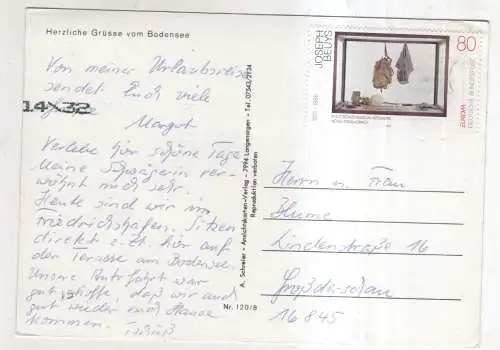 Herzliche Grüsse vom Bodensee
Von meiner Urlaubsreise
sendet Euch viele
Margot
Verlebe hier schöne Tage
Meine Schwägerin ver-
wöhnt mich sehr.
Heute sind wir in
Friedrichshafen. Sitzen
direkt z. Zt. hier auf
der Terasse am Bodensee.
Unsere Autofahrt war
gut hoffe, daß wir auch
gut wieder nach Hause
kommen. Tschüß
14X32
15
A. Schreier - Ansichtskarten-Verlag - 7994 Langenargen - Tel. 07543/2134
Reproduktion verboten
Nr. 120/8
JOSEPH
BEUYS
1921-1986
80
EUROPA
DEUTSCHE BUNDESPOST
Herrn u. Frau
Blume
Lindenstraße 16
Großderschau
16845